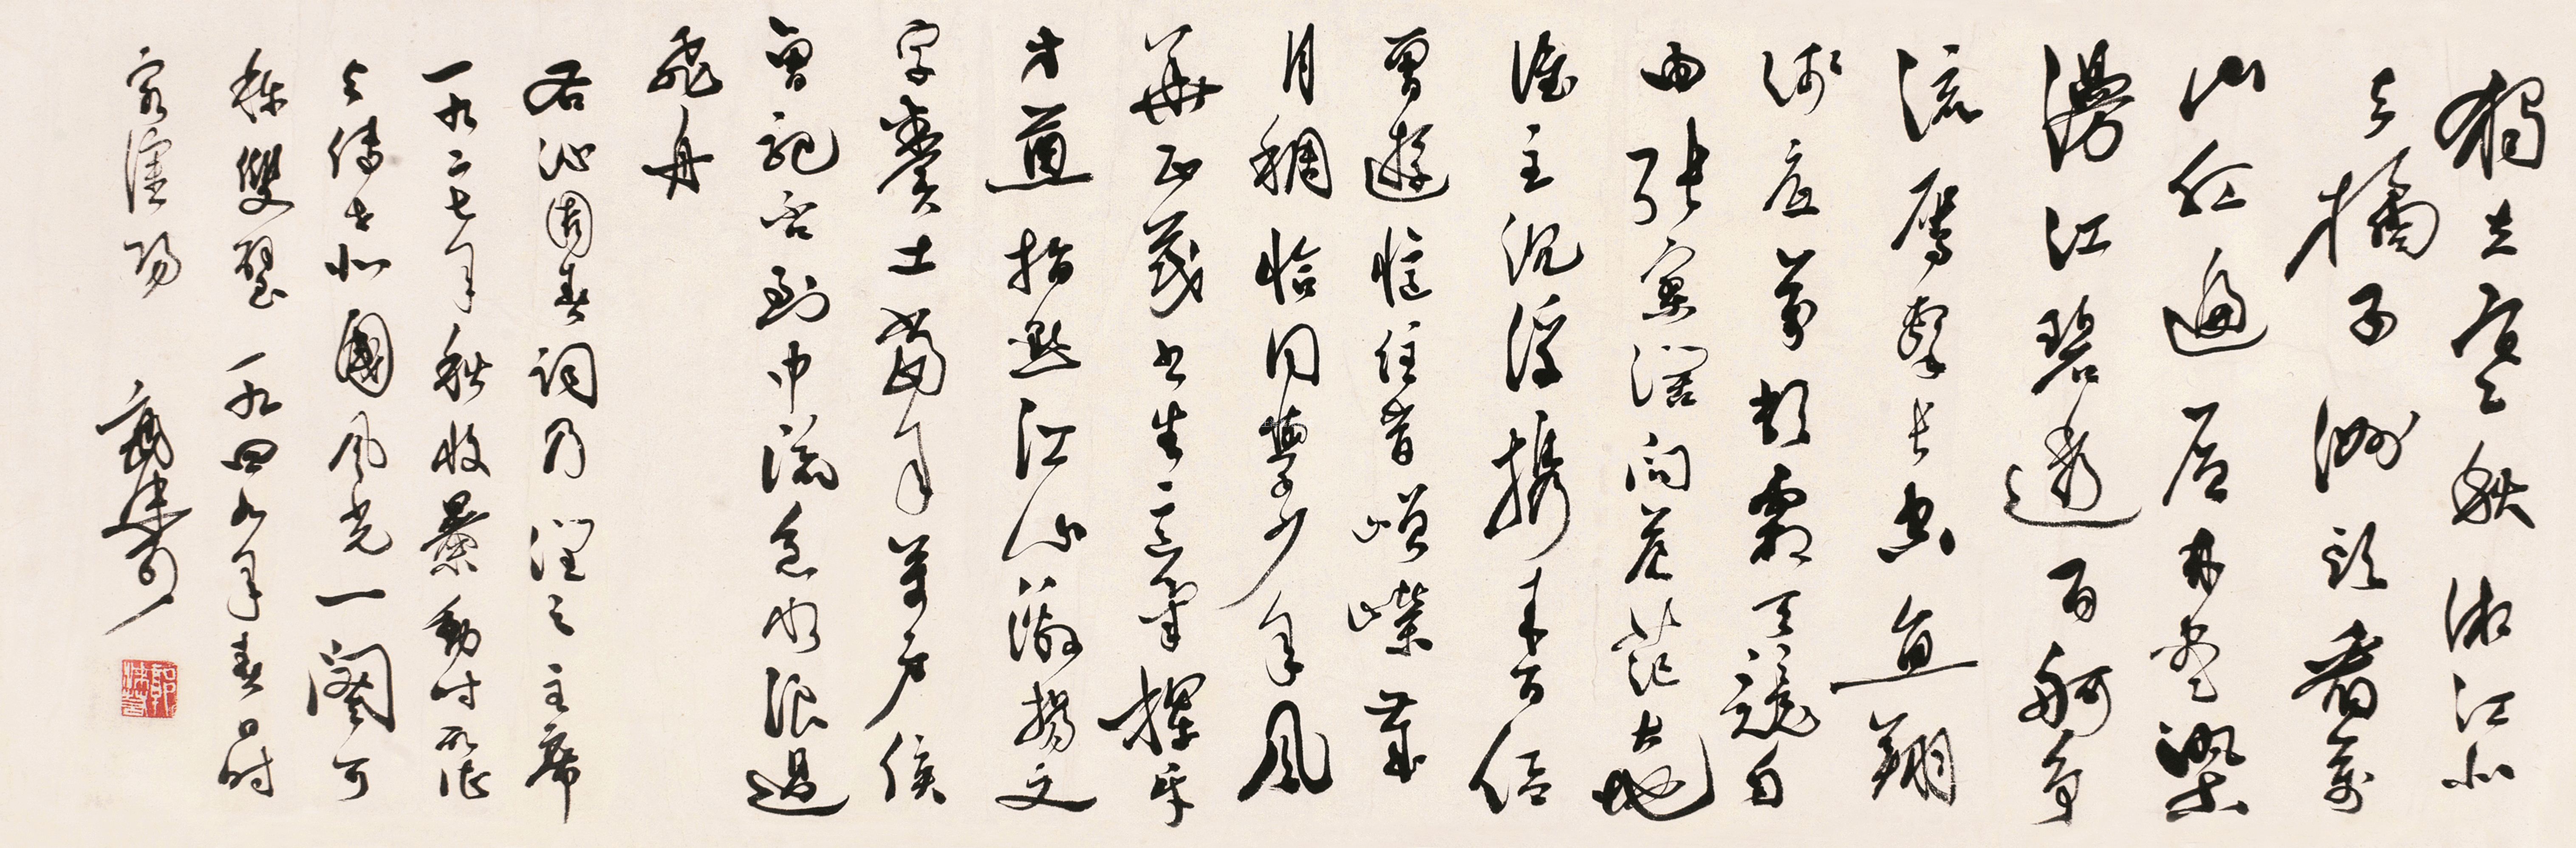 獨立寒秋湘江北
去橘子洲頭看萬
山紅遍層林盡染
漫江碧透百舸爭
流鷹擊長空魚翔
淺底萬類霜天競自
由張寥闊問蒼茫大地
誰主沉浮攜來百侶
曾遊憶往昔崢嶸歲
月稠恰同學少年風
華正茂書生意氣揮斥
方遒指點江山激揚文
字糞土當年萬戶侯
曾記否到中流浪遏
飛舟
右沁園春詞乃潤之主席
一九二七年秋收暴動時所作
與傳世北國風光一闋可
稱雙璧 一九四九年春日時
客瀋陽 郭沫若
郭沫若